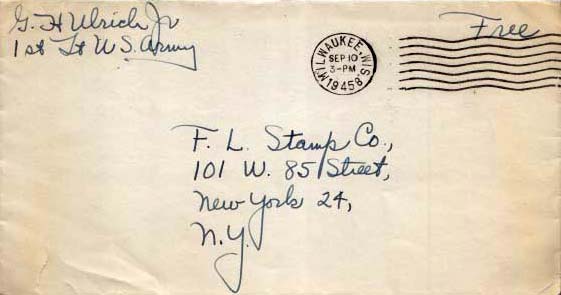 G. H Ulrich Jr
1st Lt U S. Army
Free
MILWAUKEE, WIS.
SEP 10
3-PM
1945
8
F. L. Stamp Co.,
101 W. 85 Street,
New York 24,
N.Y.